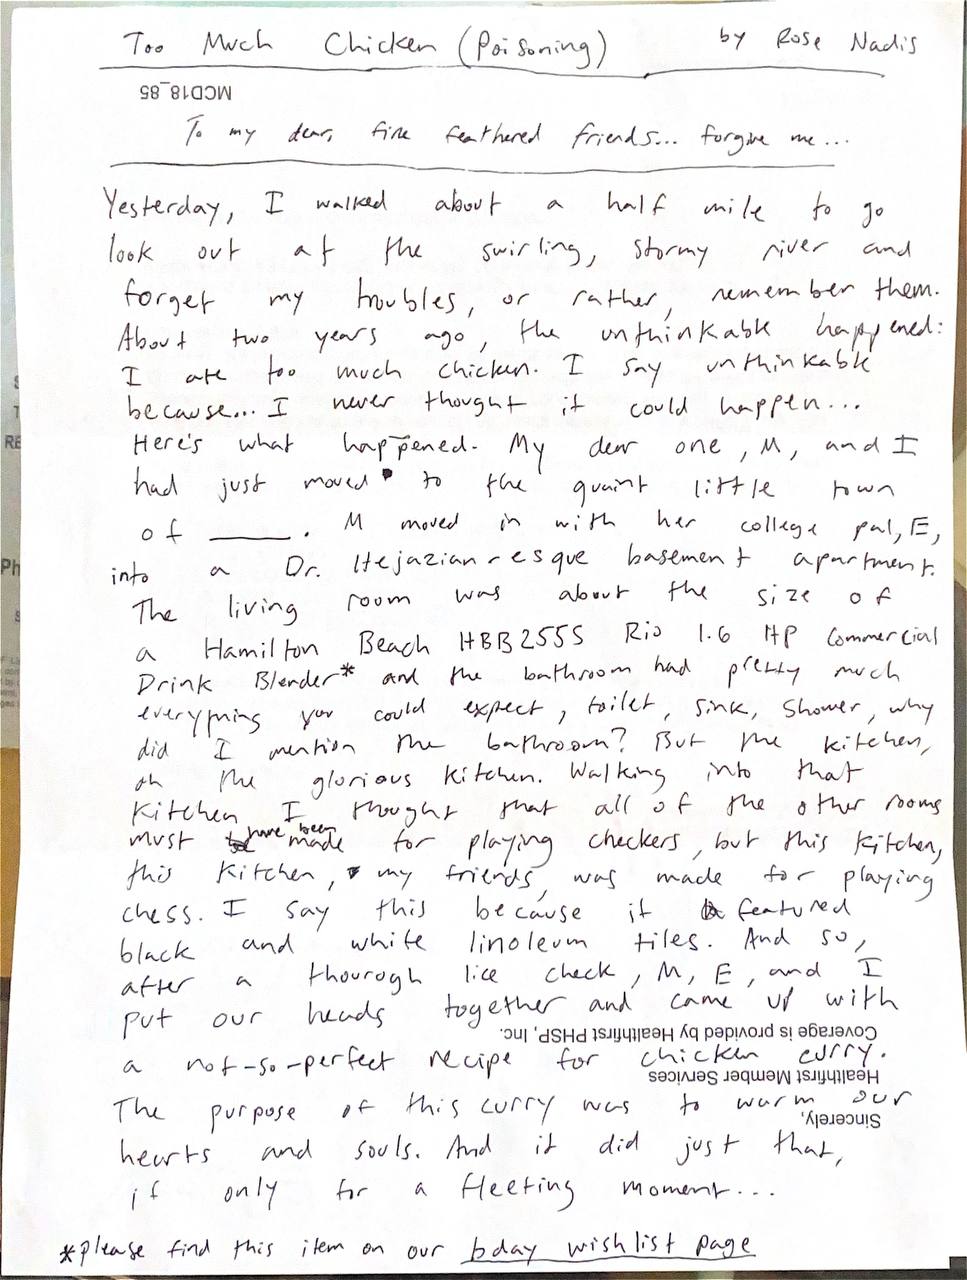 Too Much Chicken (Poisoning) by Rose Nadis
MCD18_85
To my dear, fine feathered friends... forgive me...
Yesterday, I walked about a half mile to go
look out at the swirling, stormy river and
forget my troubles, or rather, remember them.
About two years ago, the unthinkable happened:
I ate too much chicken. I say unthinkable
because... I never thought it could happen...
Here's what happened. My dear one, M, and I
had just moved to the quaint little town
of ______. M moved in with her college pal, E,
into a Dr. Hejazian-resque basement apartment.
The living room was about the size of
a Hamilton Beach HBB255S Rio 1.6 HP Commercial
Drink Blender* and the bathroom had pretty much
everything you could expect, toilet, sink, shower, why
did I mention the bathroom? But the kitchen,
oh the glorious kitchen. Walking into that
kitchen I thought that all of the other rooms
must have been made for playing checkers, but this kitchen,
this kitchen, my friends, was made for playing
chess. I say this because it featured
black and white linoleum tiles. And so,
after a thourogh lice check, M, E, and I
put our heads together and came up with
Coverage is provided by Healthfirst PHSP, Inc.
a not-so-perfect recipe for chicken curry.
Healthfirst Member Services
The purpose of this curry was to warm our
Sincerely,
hearts and souls. And it did just that,
if only for a fleeting moment...
*please find this item on our bday wishlist page